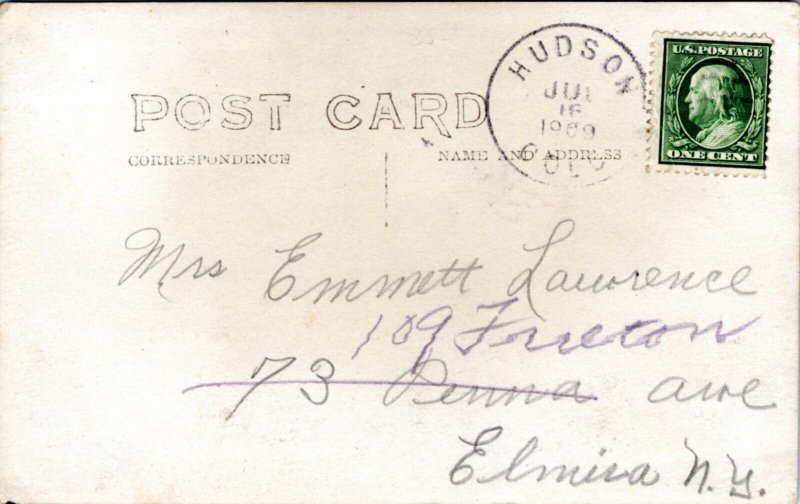 HUDSON
JUL
16
1909
COLO
U.S. POSTAGE
ONE CENT
POST CARD
CORRESPONDENCE
NAME AND ADDRESS
Mrs Emmett Lawrence
109
73 Penna Ave
Elmira N.Y.